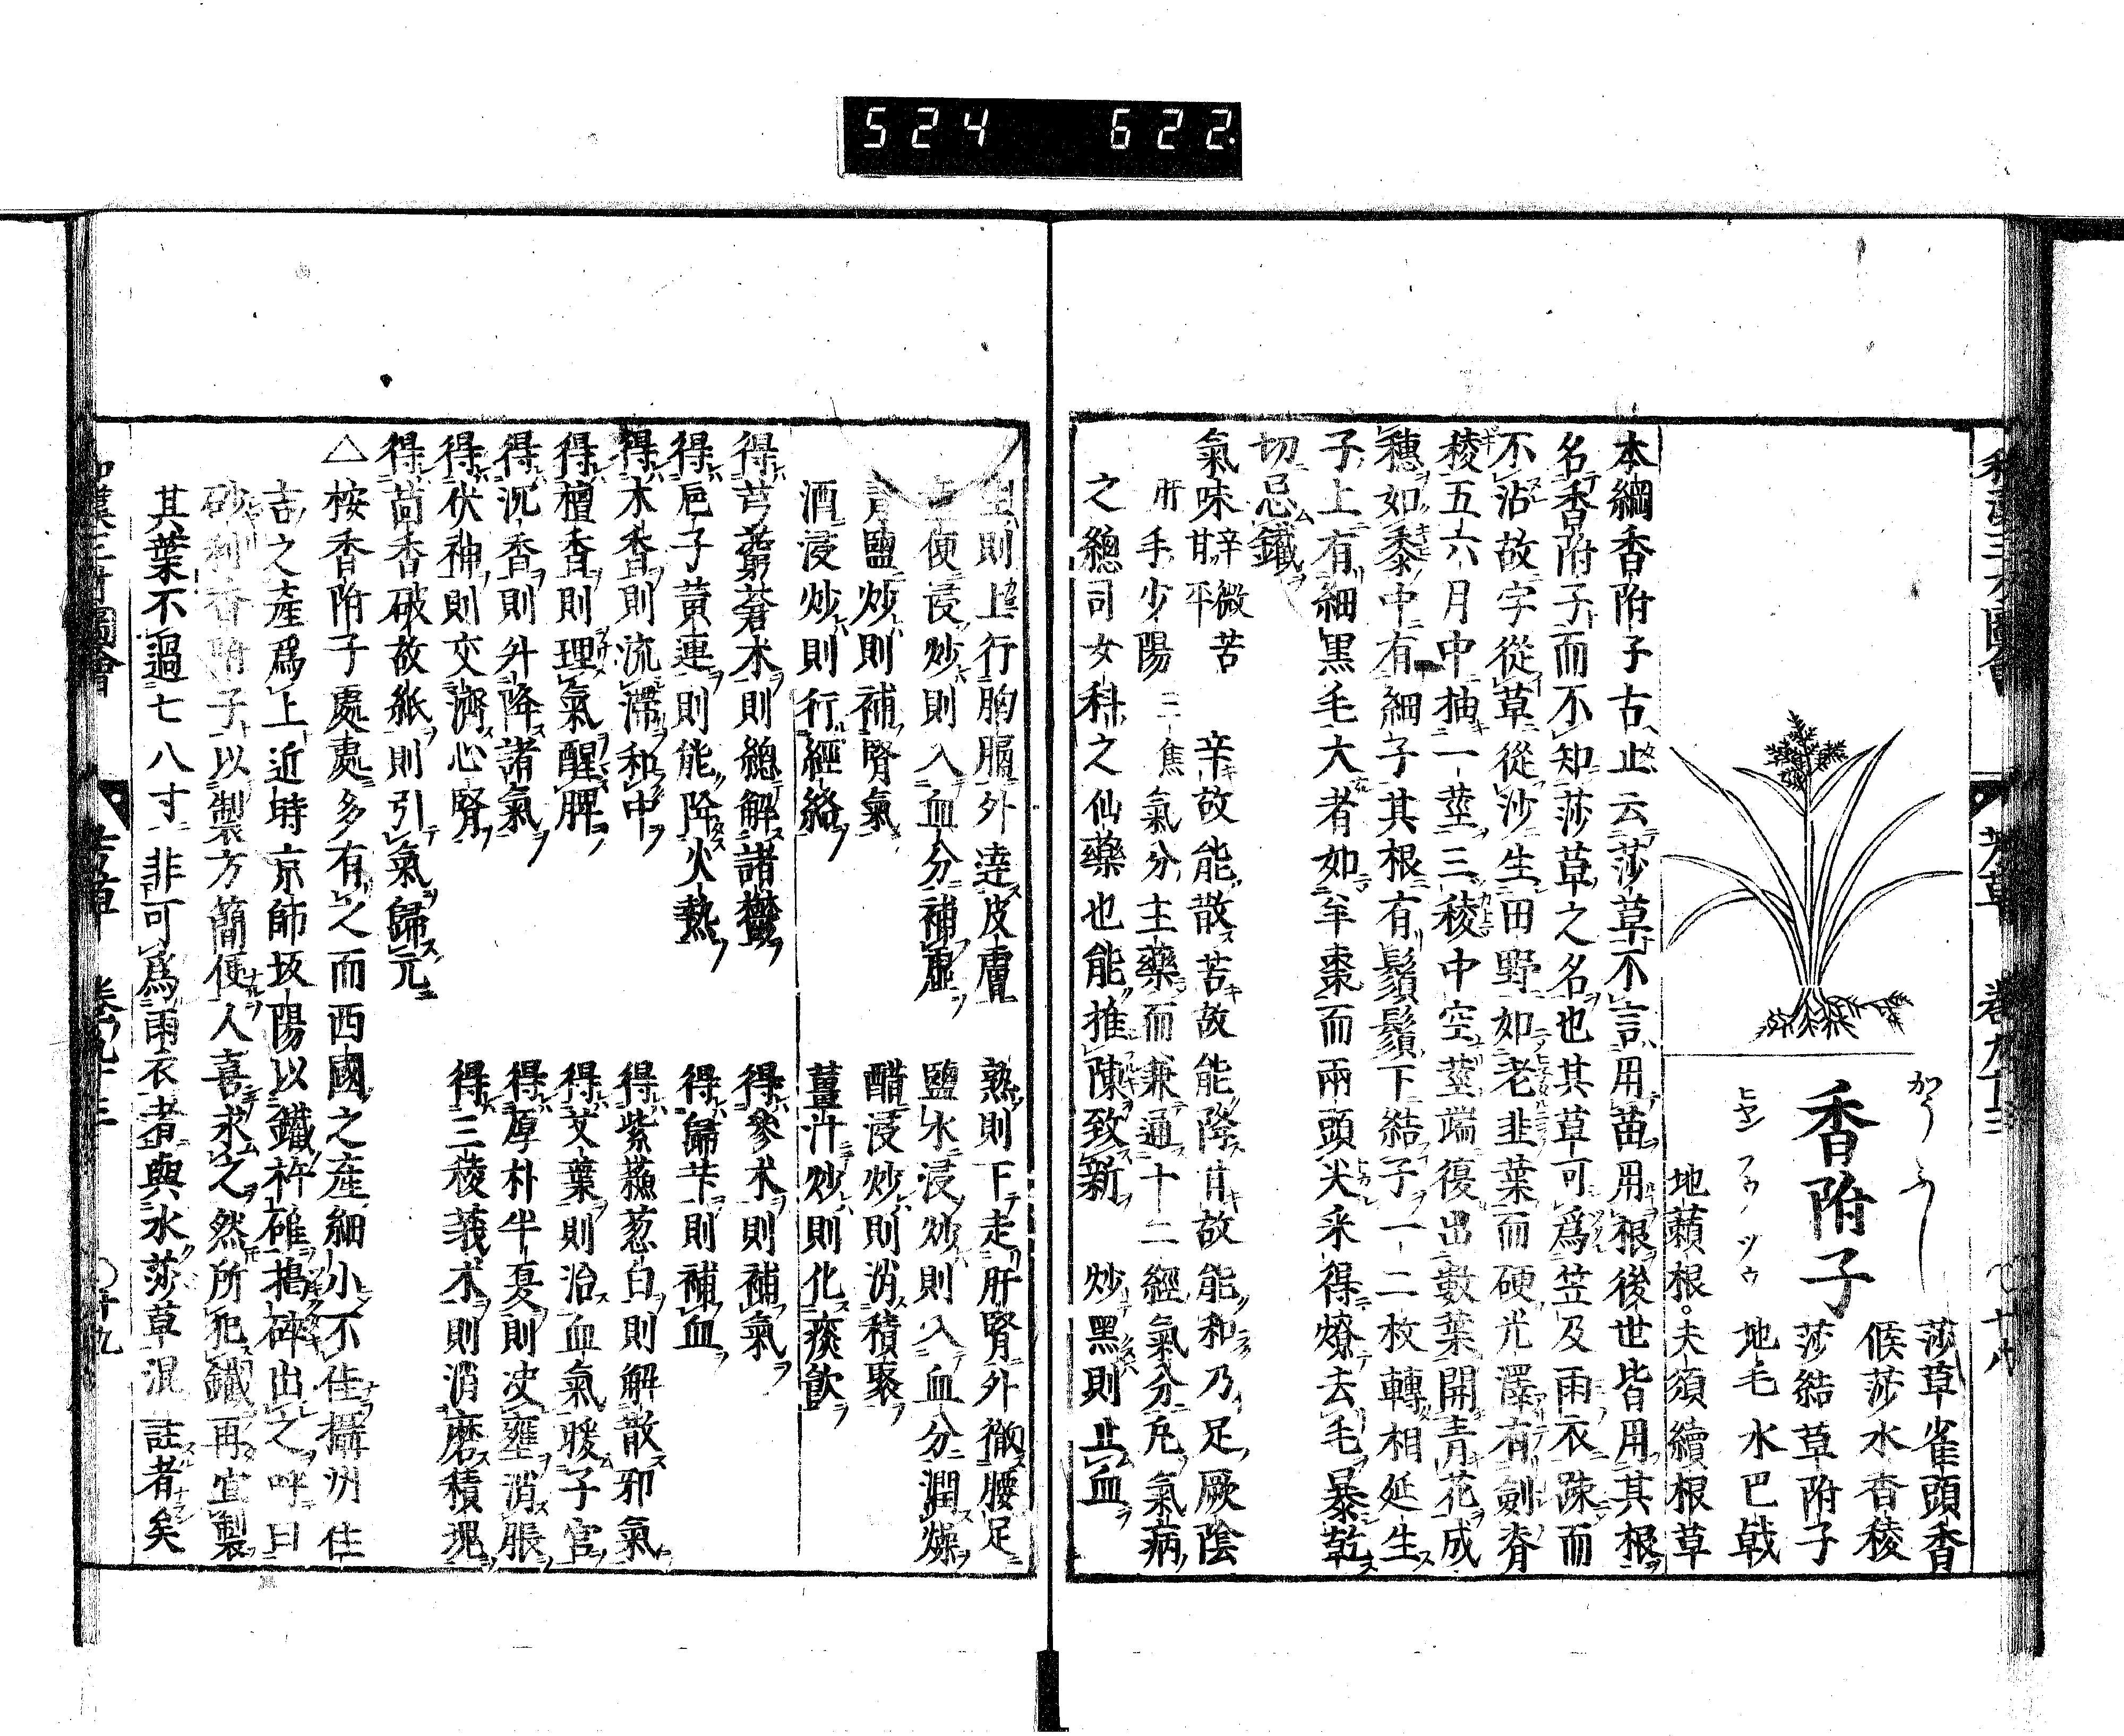 524 622
和漢三才圖會 芳草 卷九十三 〇十八
香附子
かうふし
ヒヤン フウ ツウ
莎草 雀頭香
候莎 水香稜
莎結 草附子
地毛 水巴戟
地藾根 夫須 續根草
本綱香附子古止云莎草不言用苗用根後世皆用其根
名香附子而不知莎草之名也其草可爲笠及雨衣疎而
不沾故字從草從沙生田野如老韭葉而硬光澤有劍脊
稜五六月中抽一莖三稜中空莖端復出數葉開青花成
穗如黍中有細子其根有鬚鬚下結子一二枚轉相延生
子上有細黒毛大者如羊棗而兩頭尖采得燎去毛暴乾
切忌鐵
氣味 辛微苦甘平 辛故能散苦故能降甘故能和乃足厥陰
肝手少陽三焦氣分主藥而兼通十二經氣分凡氣病
之總司女科之仙藥也能推陳致新 炒黑則止血
生則上行胸膈外達皮膚 熟則下走肝腎外徹腰足
便浸炒則入血分補虛 鹽水浸炒則入血分潤燥
青鹽炒則補腎氣 醋浸炒則消積聚
酒浸炒則行經絡 薑汁炒則化痰飲
得芎藭蒼朮則總解諸鬱 得參朮則補氣
得巵子黄連則能降火熱 得歸芐則補血
得木香則流滯和中 得紫蘇葱白則解散邪氣
得檀香則理氣醒脾 得艾葉則治血氣暖子宮
得沉香則升降諸氣 得厚朴半夏則决壅消脹
得伏神則交濟心腎 得三稜莪朮則消磨積塊
得茴香破故紙則引氣歸元
△桉香附子處處多有人而西國之產細小不佳攝州住
吉之產爲上近時京師坂陽以鐵杵碓搗碎出之呼曰
砂利香附子以製方簡便人喜求之然所犯鐵再宜製
其葉不過七八寸非可爲雨衣者與水莎草混註者矣
和漢三才圖會 芳草 卷九十三 〇十九